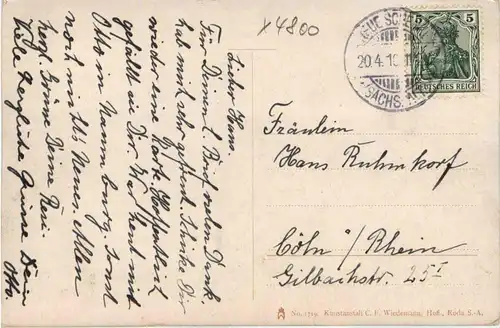 x 4800
5 5
DEUTSCHES REICH
20.4.1
(SACHS.
Lieber Hans.
Für Deinen l. Brief vielen Dank
hab mich sehr gefreut. Schicke Dir
wieder eine Karte. Hoffentlich
gefällt sie Dir. War heut mit
Otto in Naumburg, sonst
noch nichts Neues. Allen
herzl. Grüsse Dein
Viele herzliche Grüsse Dein
Otto.
Fräulein
Hans Ruhmkorf
Cöln / Rhein
Gilbachstr. 25 I
No. 1719. Kunstanstalt C. F. Wiedemann, Hofl., Roda S.-A.